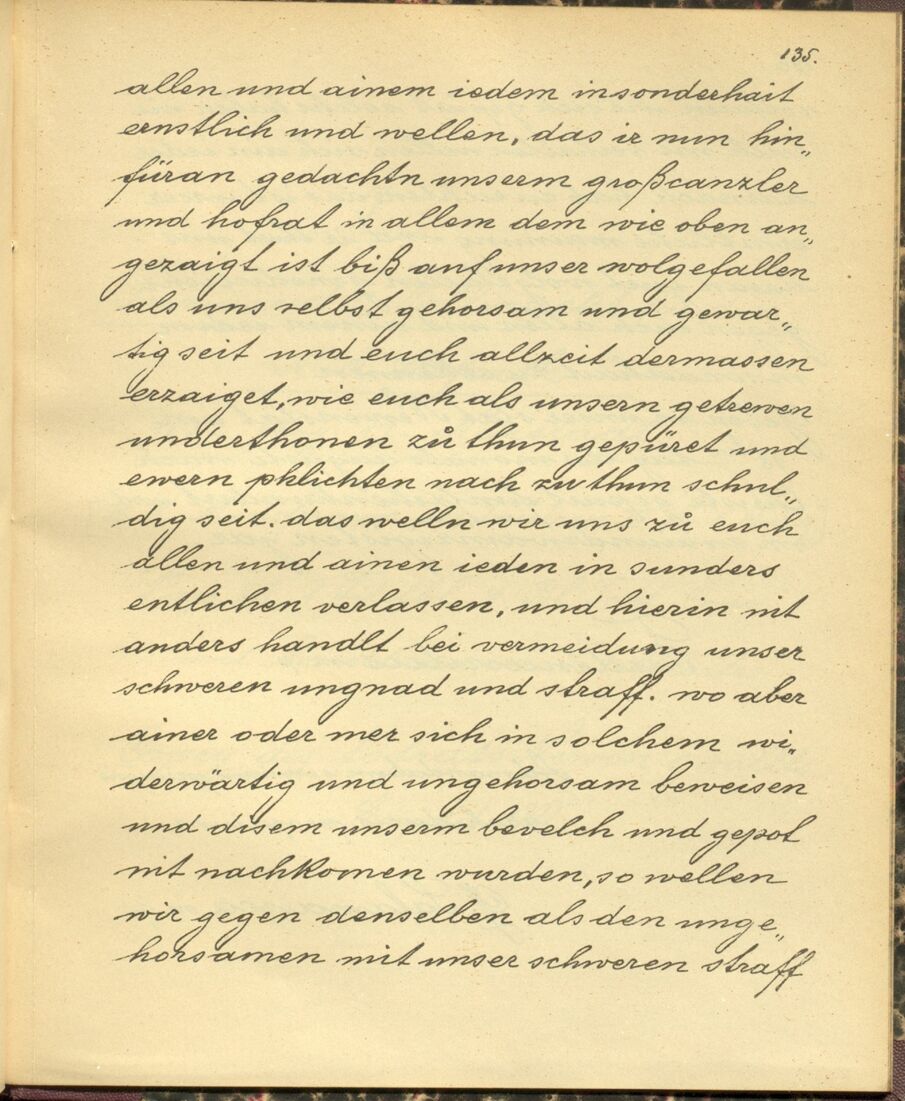 135.
allen und ainem iedem in sonderhait
ernstlich und wellen, das ir nun hin„
füran gedachtn unserm großcanzler
und hofrat in allem dem wie oben an„
gezaigt ist biß auf unser wolgefallen
als uns selbst gehorsam und gewar„
tig seit und euch allzeit dermassen
erzaiget, wie euch als unsern getrewen
underthonen zů thun gepüret und
ewern phlichten nach zu thun schul„
dig seit. das welln wir uns zů euch
allen und ainen ieden in sunders
entlichen verlassen, und hierin nit
anders handlt bei vermeidung unser
schweren ungnad und straff. wo aber
ainer oder mer sich in solchem wi„
derwärtig und ungehorsam beweisen
und disem unserm bevelch und gepot
nit nachkomen wurden, so wellen
wir gegen denselben als den unge„
horsamen mit unser schweren straff